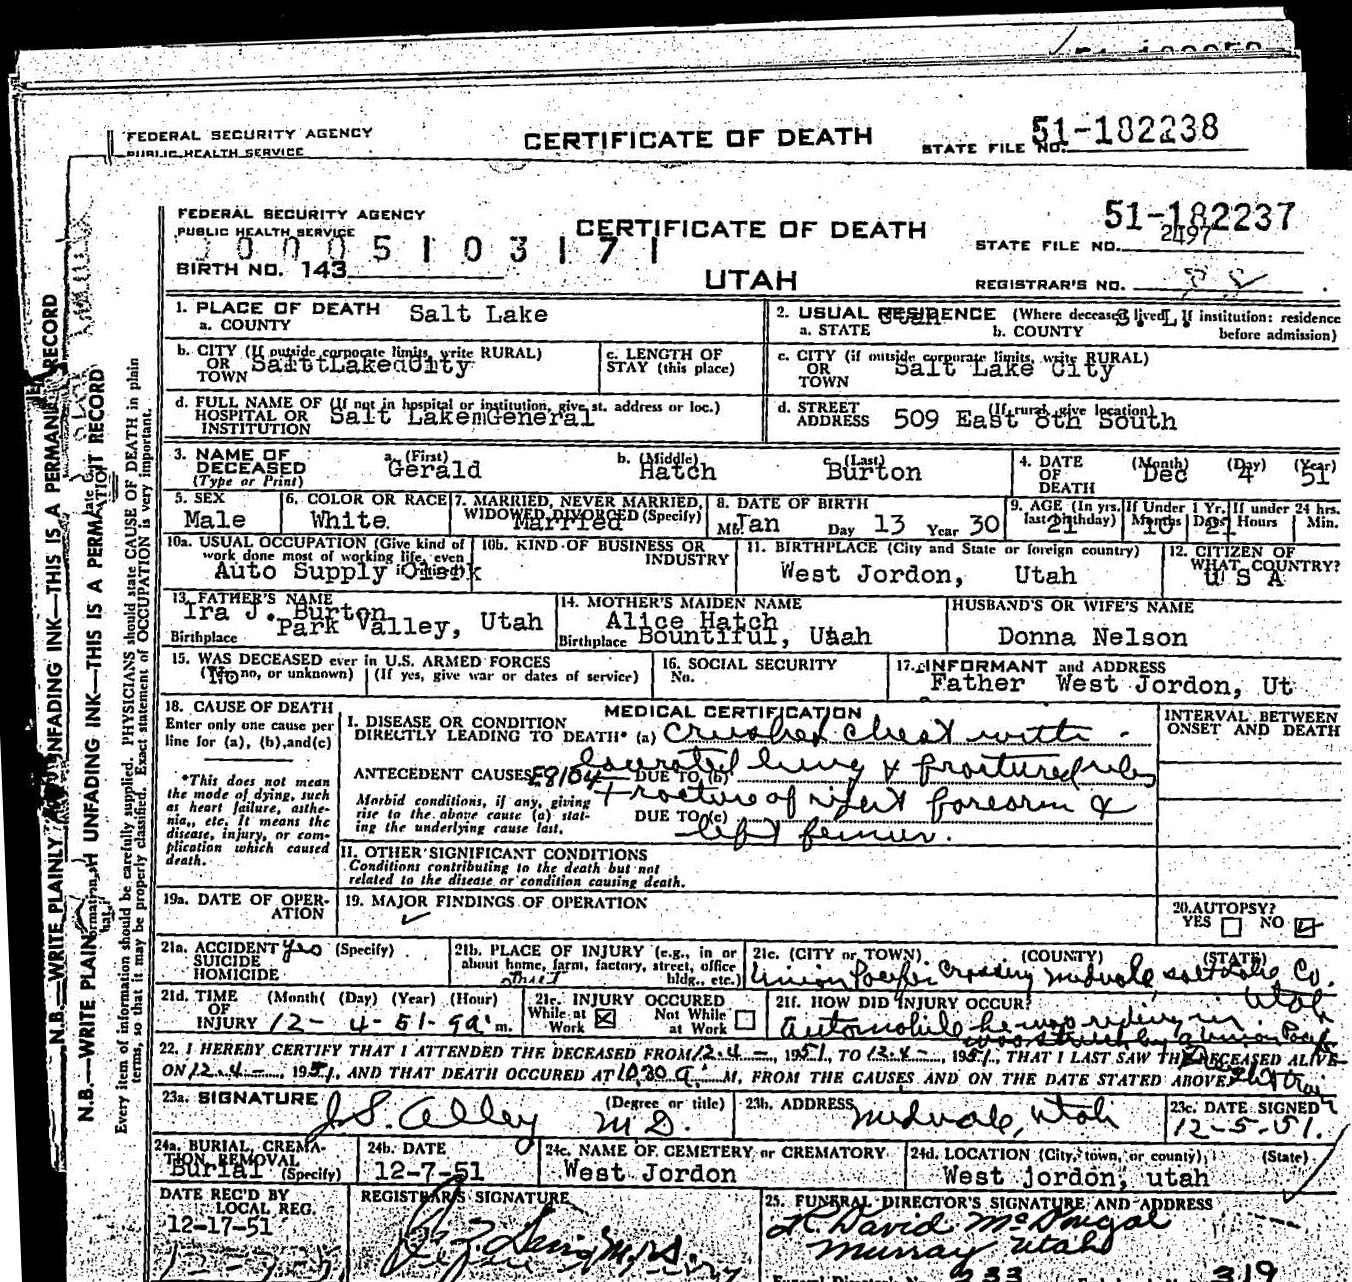 FEDERAL SECURITY AGENCY
PUBLIC HEALTH SERVICE
CERTIFICATE OF DEATH
STATE FILE NO. 51-182238
FEDERAL SECURITY AGENCY
PUBLIC HEALTH SERVICE
CERTIFICATE OF DEATH
51-182237
STATE FILE NO. 2497
0005103171
BIRTH NO. 143
UTAH
REGISTRAR'S NO.
1. PLACE OF DEATH Salt Lake
a. COUNTY
2. USUAL RESIDENCE (Where deceased lived. If institution: residence before admission)
a. STATE Utah b. COUNTY S. L.
b. CITY (If outside corporate limits, write RURAL)
OR TOWN Salt Lake City
c. LENGTH OF STAY (this place)
c. CITY (if outside corporate limits, write RURAL)
OR TOWN Salt Lake City
d. FULL NAME OF (If not in hospital or institution, give st. address or loc.)
HOSPITAL OR INSTITUTION Salt Lake General
d. STREET ADDRESS (If rural, give location) 509 East 8th South
3. NAME OF DECEASED (Type or Print)
a. (First) Gerald b. (Middle) Hatch c. (Last) Burton
4. DATE OF DEATH (Month) (Day) (Year) Dec 4 51
5. SEX Male
6. COLOR OR RACE White
7. MARRIED, NEVER MARRIED, WIDOWED, DIVORCED (Specify) Married
8. DATE OF BIRTH
Mth. Jan Day 13 Year 30
9. AGE (In yrs. last birthday) 21 If Under 1 Yr. Months 10 Days 21 If under 24 hrs. Hours Min.
10a. USUAL OCCUPATION (Give kind of work done most of working life, even if retired)
Auto Supply
10b. KIND OF BUSINESS OR INDUSTRY
11. BIRTHPLACE (City and State or foreign country)
West Jordon, Utah
12. CITIZEN OF WHAT COUNTRY?
U S A
13. FATHER'S NAME
Ira J. Burton
Birthplace Park Valley, Utah
14. MOTHER'S MAIDEN NAME
Alice Hatch
Birthplace Bountiful, Uaah
HUSBAND'S OR WIFE'S NAME
Donna Nelson
15. WAS DECEASED ever in U.S. ARMED FORCES
(Yes, no, or unknown) No (If yes, give war or dates of service)
16. SOCIAL SECURITY No.
17. INFORMANT and ADDRESS
Father West Jordon, Ut
18. CAUSE OF DEATH
Enter only one cause per line for (a), (b), and (c)
*This does not mean the mode of dying, such as heart failure, asthenia, etc. It means the disease, injury, or complication which caused death.
MEDICAL CERTIFICATION
I. DISEASE OR CONDITION
DIRECTLY LEADING TO DEATH* (a) Crushed chest with
lacerated lung & fractured ribs
ANTECEDENT CAUSES E8104 DUE TO (b)
Morbid conditions, if any, giving rise to the above cause (a) stating the underlying cause last.
Fracture of right forearm &
DUE TO (c)
left femur.
II. OTHER SIGNIFICANT CONDITIONS
Conditions contributing to the death but not related to the disease or condition causing death.
INTERVAL BETWEEN ONSET AND DEATH
19a. DATE OF OPERATION
19. MAJOR FINDINGS OF OPERATION
20. AUTOPSY?
YES NO
21a. ACCIDENT Yes (Specify)
SUICIDE
HOMICIDE
21b. PLACE OF INJURY (e.g., in or about home, farm, factory, street, office bldg., etc.)
Street
21c. (CITY or TOWN) (COUNTY) (STATE)
Union Pacific Crossing Midvale, Salt Lake Co. Utah
21d. TIME OF INJURY (Month) (Day) (Year) (Hour)
12- 4-51-9a m.
21e. INJURY OCCURED
While at Work Not While at Work
21f. HOW DID INJURY OCCUR?
Automobile he was riding in
was struck by a Union Pacific
freight train
22. I HEREBY CERTIFY THAT I ATTENDED THE DECEASED FROM 12-4-, 1951, TO 12-4-, 1951, THAT I LAST SAW THE DECEASED ALIVE
ON 12-4-, 1951, AND THAT DEATH OCCURED AT 10:30 a. M., FROM THE CAUSES AND ON THE DATE STATED ABOVE.
23a. SIGNATURE J.S. Alley (Degree or title) M.D.
23b. ADDRESS Midvale, Utah
23c. DATE SIGNED
12-5-51.
24a. BURIAL, CREMATION REMOVAL (Specify)
Burial
24b. DATE
12-7-51
24c. NAME OF CEMETERY or CREMATORY
West Jordon
24d. LOCATION (City, town, or county) (State)
West jordon, utah
DATE REC'D BY LOCAL REG.
12-17-51
REGISTRAR'S SIGNATURE
25. FUNERAL DIRECTOR'S SIGNATURE AND ADDRESS
R David McDougal
Murray Utah
233 319
N.B.—WRITE PLAINLY WITH UNFADING INK—THIS IS A PERMANENT RECORD
N.B.—WRITE PLAINLY WITH UNFADING INK—THIS IS A PERMANENT RECORD
Every item of information should be carefully supplied. PHYSICIANS should state CAUSE OF DEATH in plain
terms, so that it may be properly classified. Exact statement of OCCUPATION is very important.